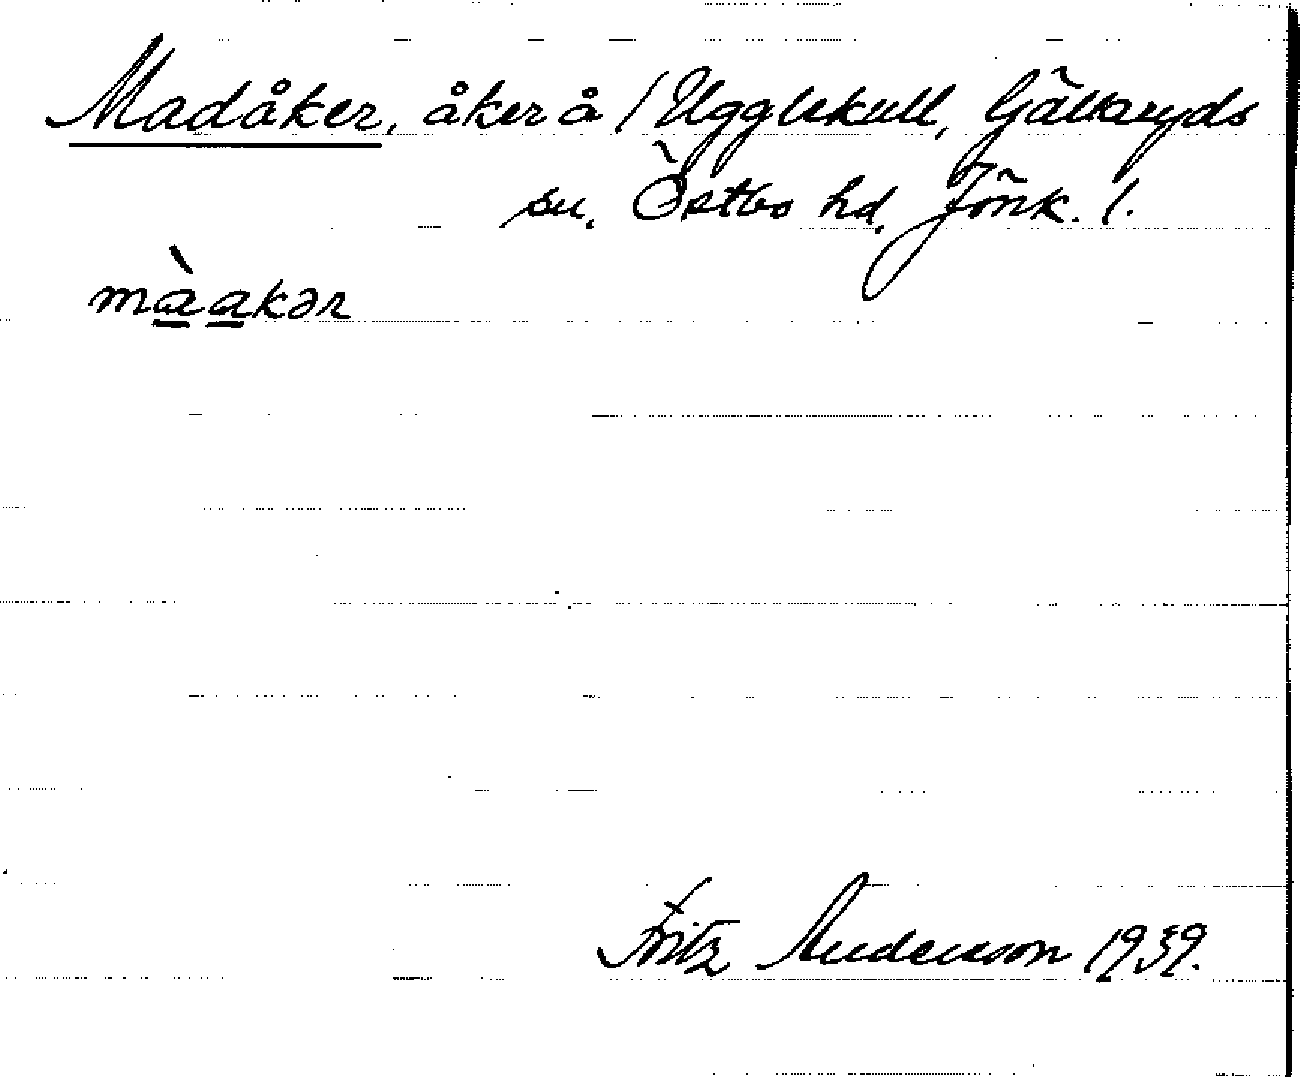 Madåker, åker å / Ugglekull, Gällaryds
sn. Östbo hd, Jönk. l.
màakər
Fritz Andersson 1939.